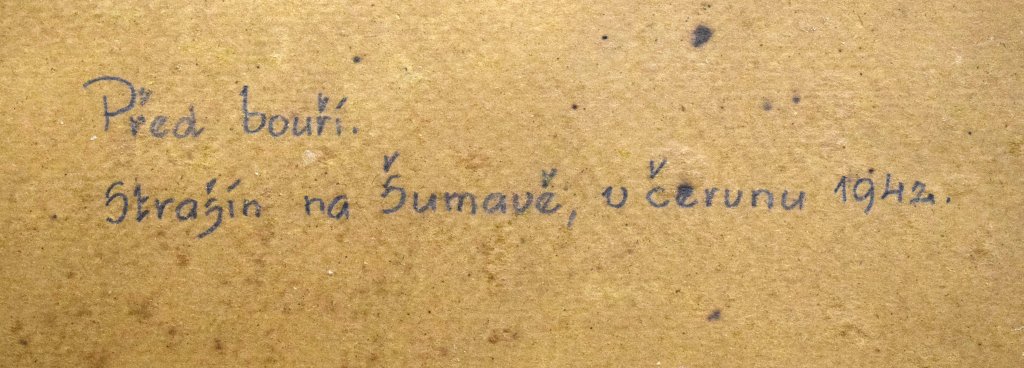 Před bouří.
Strašín na Šumavě, v červnu 1942.